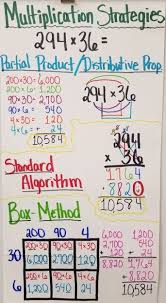 Multiplication Strategies
294×36=
Partial Product/Distributive Prop.
200×30=6,000
200×6=1,200
90×30=2,700
90×6=540
4×30=120
4×6=+ 24
10,584
294×36
Standard
Algorithm
294
× 36
1764
+8820
10,584
Box-Method
200 90 4
30
200×30
6,000
90×30
2,700
4×30
120
6
200×6
1,200
90×6
540
4×6
24
6,000
2,700
+ 120
8,820
1,200
540
+ 24
1,764
8,820
+1,764
10,584